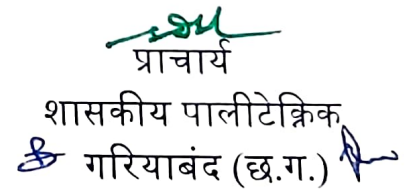 प्राचार्य
शासकीय पालीटेक्निक
गरियाबंद (छ.ग.)